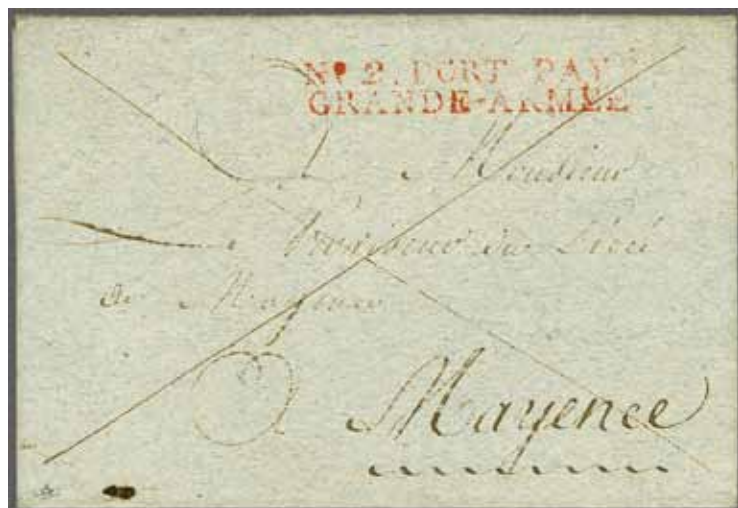 No 2. PORT PAYÉ
GRANDE-ARMÉE
A Monsieur
Proviseur du Licé
de Mayence
A Mayence